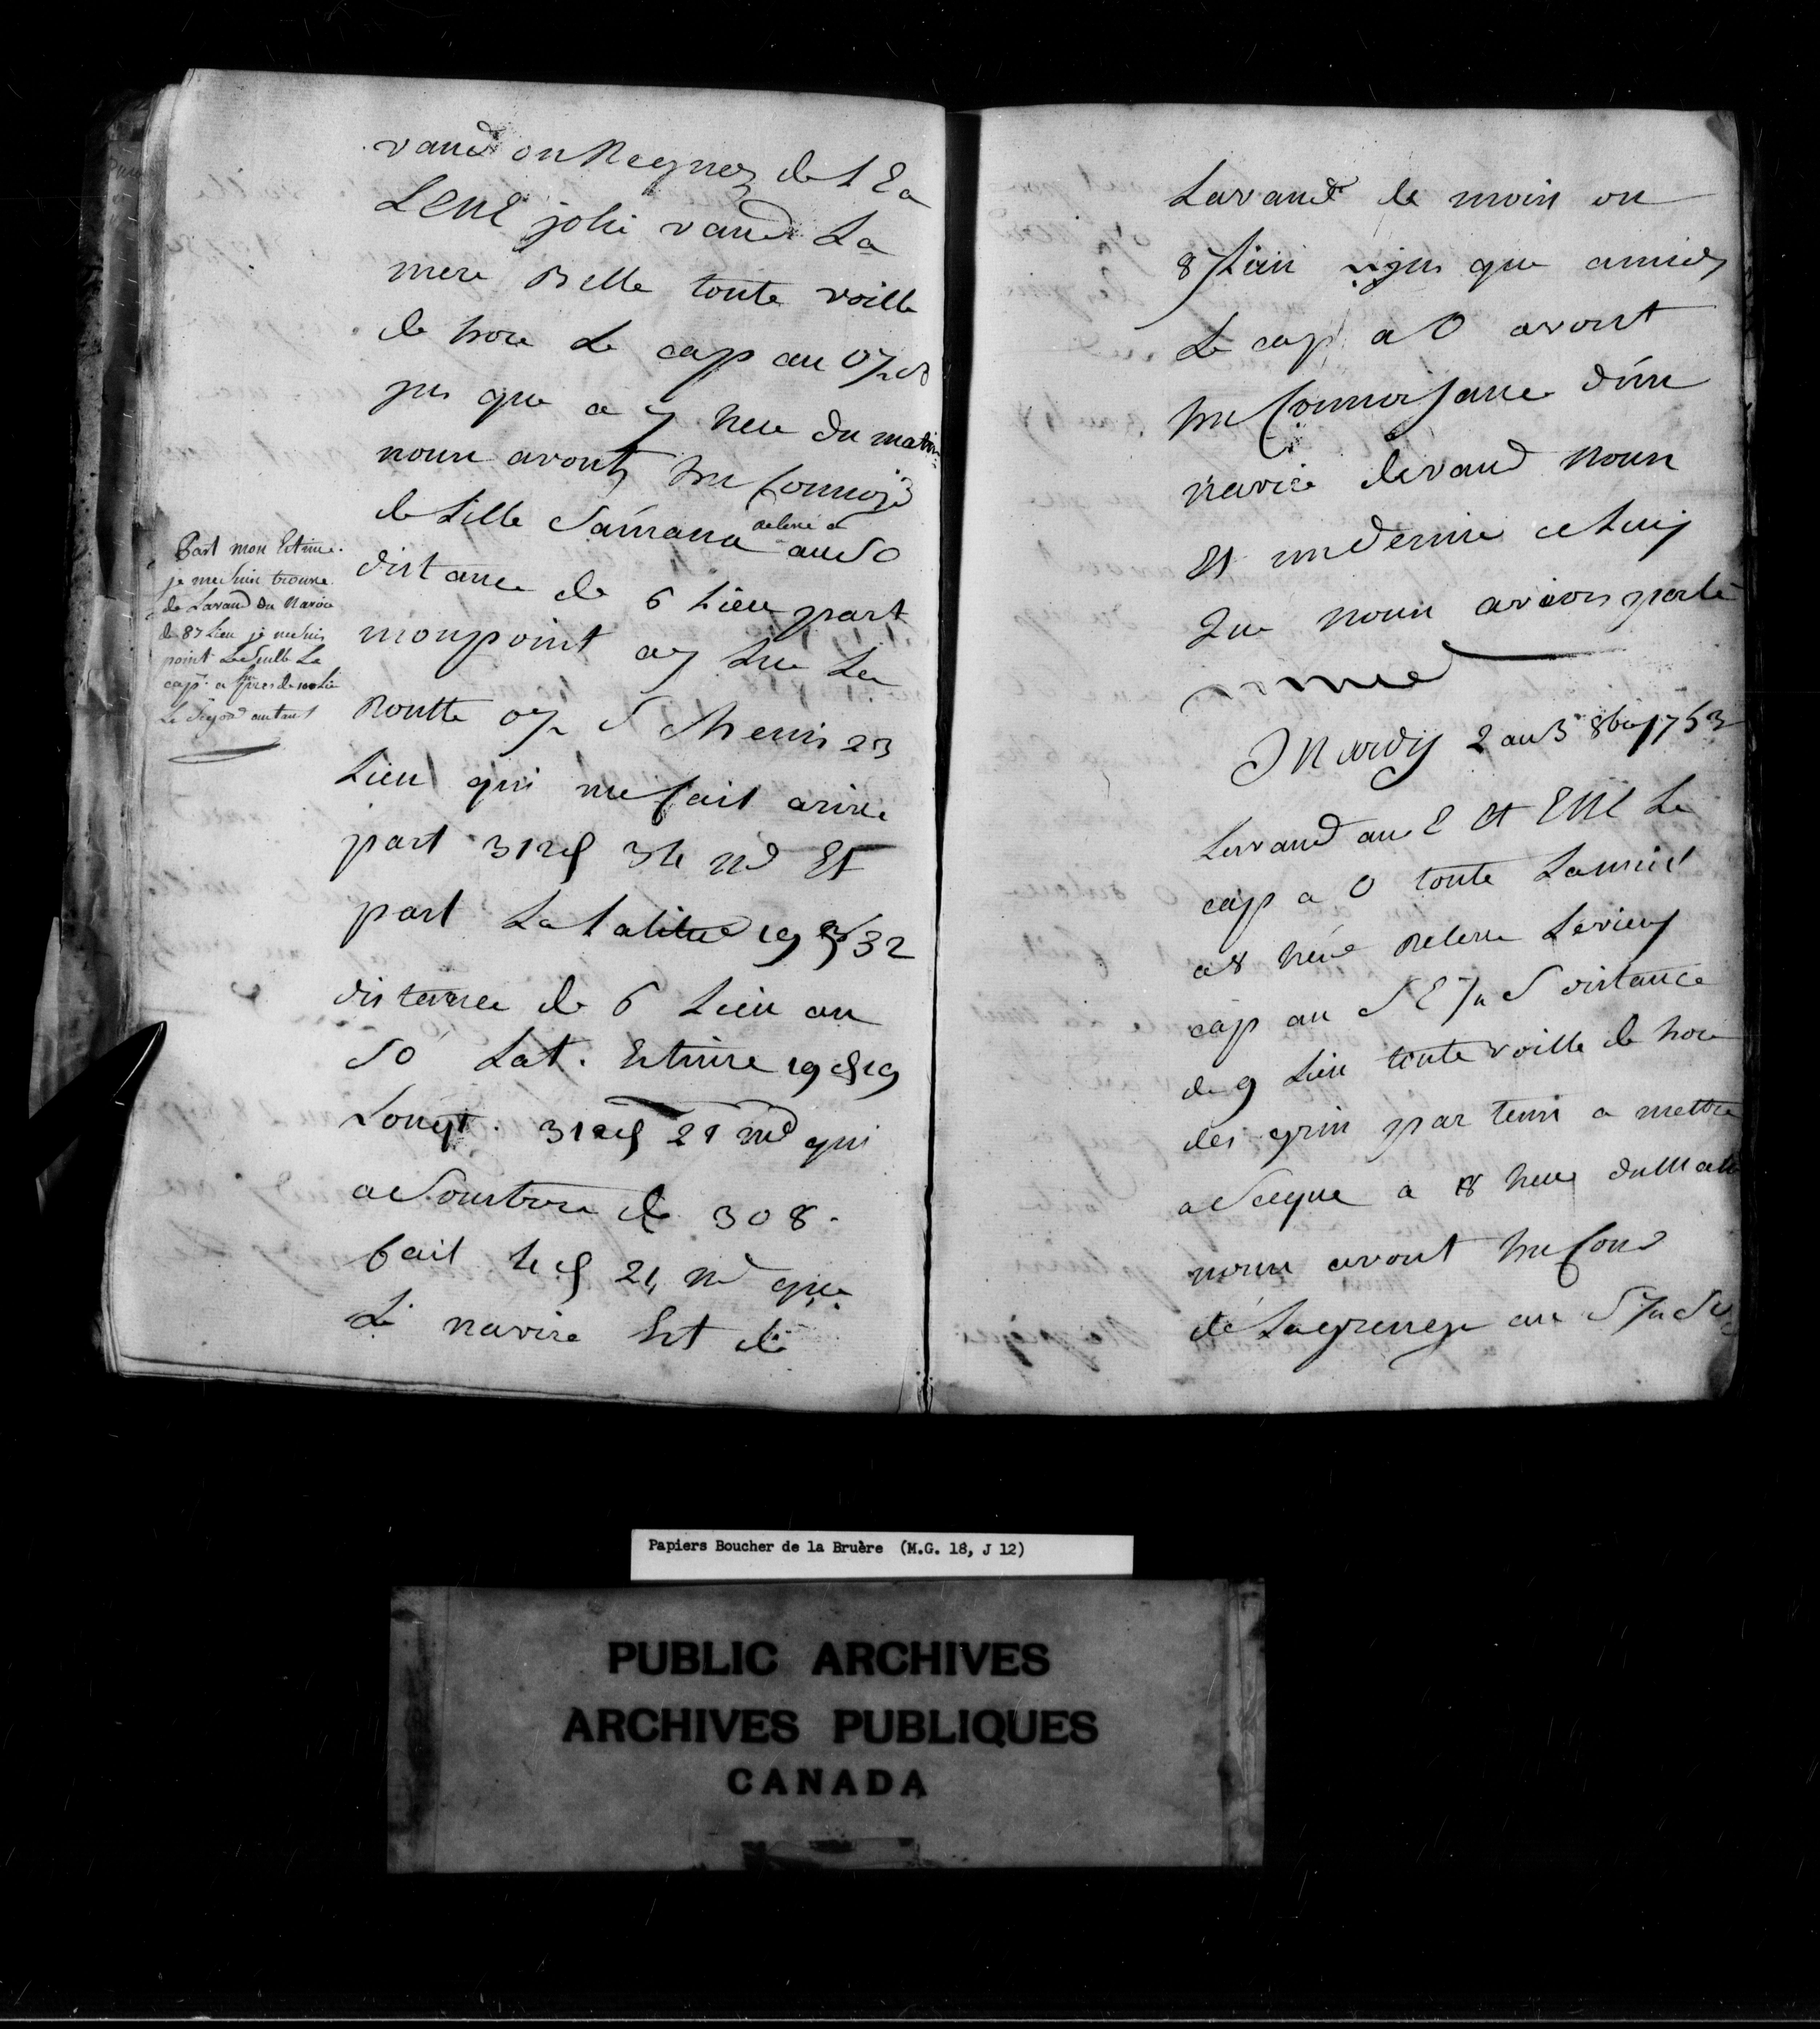 vand on Regnez de l E a
LENE joli vand La
mere Belle toute voille
de hore Le cap au O
jus que a 7 heu du matin
nous avont hu connoiś
de Lille Samana relevé a au SO
distance de 6 Lieu part
mon point a 7 hu La
Routte O S Chemin 23
Lieu qui me fait arive
part 312 34 nd Et
part La latitud 19 32
distence de 6 Lieu au
SO Lat. Estime 19 19
Longt. 312 21 nd qui
a Soustrere de 308.
fait 4 21 nd que
Le navire Est de
Part mon Estime.
je me suis trouve
de Lavand du Navire
de 87 Lieu je ne suis
point Le Seulle Le
cap. a pres de 100 Lie
Le Segond autant
Lavand de moin ou
87 Lieu jus que a midy
Le cap a O avont
hu Connoisance d'un
navire devand nous
Et un derrire celuy
Que nous avions parle
Mardy 2 au 3 8be 1753
Le vand au E et ENE Le
cap a O toute La nuit
a 8 heue Releve Le vieux
cap au SE S distance
de 9 Lieu toute voille de hore
des grin par tems a mettre
a Secque a 8 heue du Matin
nous avont hu Cons
de La grenge au S
Papiers Boucher de la Bruère (M.G. 18, J 12)
PUBLIC ARCHIVES
ARCHIVES PUBLIQUES
CANADA